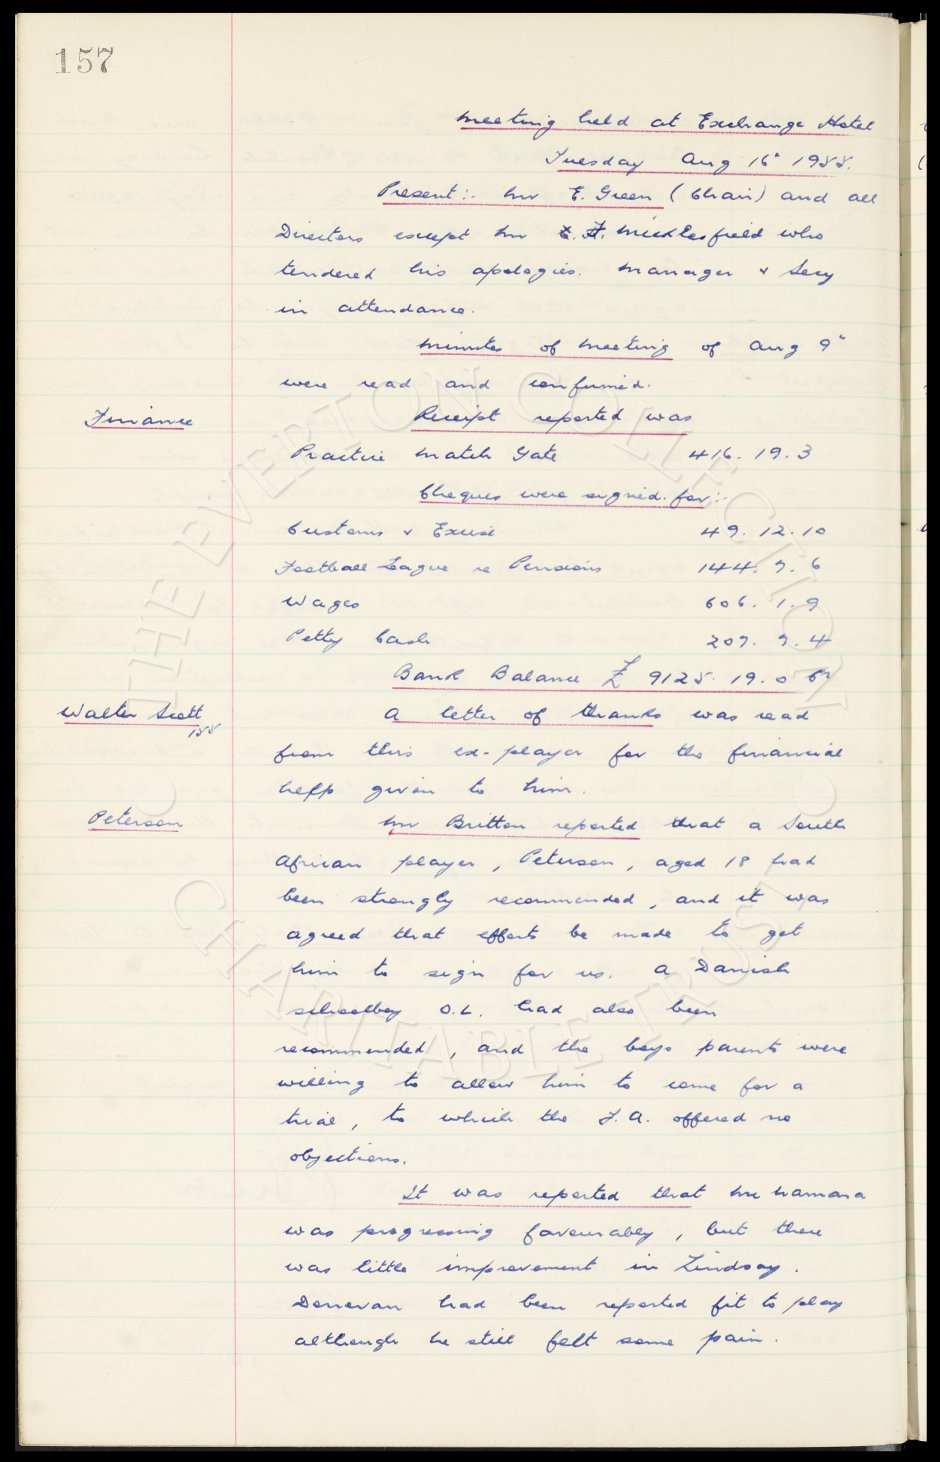 157
Meeting held at Exchange Hotel
Tuesday Aug 16" 1955.
Present:- Mr E. Green (Chair) and all
Directors except Mr C. F. Micklesfield who
tendered his apologies. Manager & Secy
in attendance.
Minutes of Meeting of Aug 9"
were read and confirmed.
Finance
Receipt reported was
Practice Match Gate 416. 19. 3
Cheques were signed for:-
Customs & Excise 49. 12. 10
Football League re Pensions 144. 7. 6
Wages 606. 1. 9
Petty Cash 207. 7. 4
Bank Balance £ 9125. 19. 0 Cr
Walter Scott
155
A letter of thanks was read
from this ex-player for the financial
help given to him.
Peterson
Mr Britton reported that a South
African player, Peterson, aged 18 had
been strongly recommended, and it was
agreed that efforts be made to get
him to sign for us. A Danish
schoolboy O.L. had also been
recommended, and the boys parents were
willing to allow him to come for a
trial, to which the F.A. offered no
objections.
It was reported that McNamara
was progressing favourably, but there
was little improvement in Lindsay.
Donovan had been reported fit to play
although he still felt some pain.
THE EVERTON COLLECTION
CHARITABLE TRUST